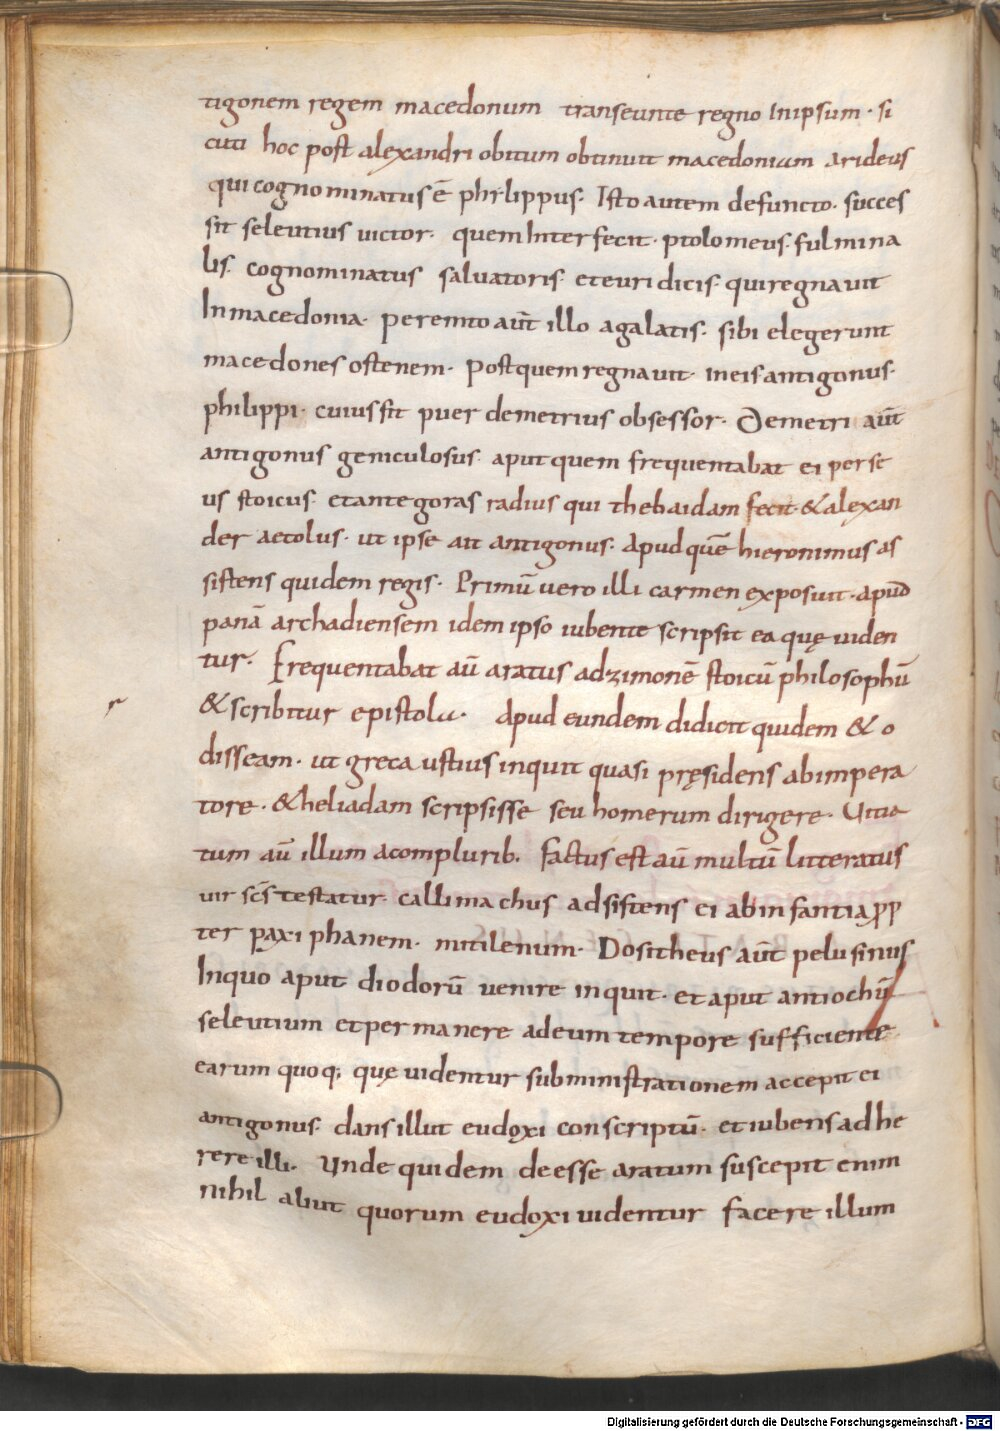 tigonem regem macedonum transeunte regno Inipsum · si
cuti hoc post alexandri obitum obtinuit macedonium arideus
qui cognominatus ē philippus · Isto autem defuncto · succes
sit seleutius uictor · quem Interfecit · ptolomeus · fulmina
lis · cognominatus saluatoris · et euridicis · qui regnauit
In macedonia · peremto aūt illo agalatis · sibi elegerunt
macedones ostenem · Post quem regnauit · in eis antigonus ·
philippi · cuius fit puer demetrius obsessor · Demetri aūt
antigonus geniculosus · aput quem frequentabat ei perse
us stoicus · et antegoras radius qui thebaidam fecit · & alexan
der aetolus · ut ipse ait antigonus · Apud quē hieronimus as
sistens quidem regis · Primū uero illi carmen exposuit · apud
panā archadiensem idem ipso iubente scripsit ea quę uiden
tur · Frequentabat aū aratus adzimonē stoicū philosophū
& scribitur epistola · Apud eundem didicit quidem & o
disseam · ut greca ustius inquit quasi pręsidens abimpera
tore · & heliadam scripsisse seu homerum dirigere · Uitia
tum aū illum a complurib. Factus est aū multū litteratus
uir scs̄ testatur · callimachus adsistens ei ab infantia pp
ter paxiphanem · mitilenum · Dositheus aūt pelusinus
Inquo aput diodorū uenire inquit · et aput antiochū
seleutium et permanere ad eum tempore sufficiente
earum quoq; quę uidentur subministrationem accepit ei
antigonus · dans illut eudoxi conscriptū · et iubens adhe
rere illi · Unde quidem deesse aratum suscepit enim
nihil aliut quorum eudoxi uidentur facere illum
r
Digitalisierung gefördert durch die Deutsche Forschungsgemeinschaft - DFG